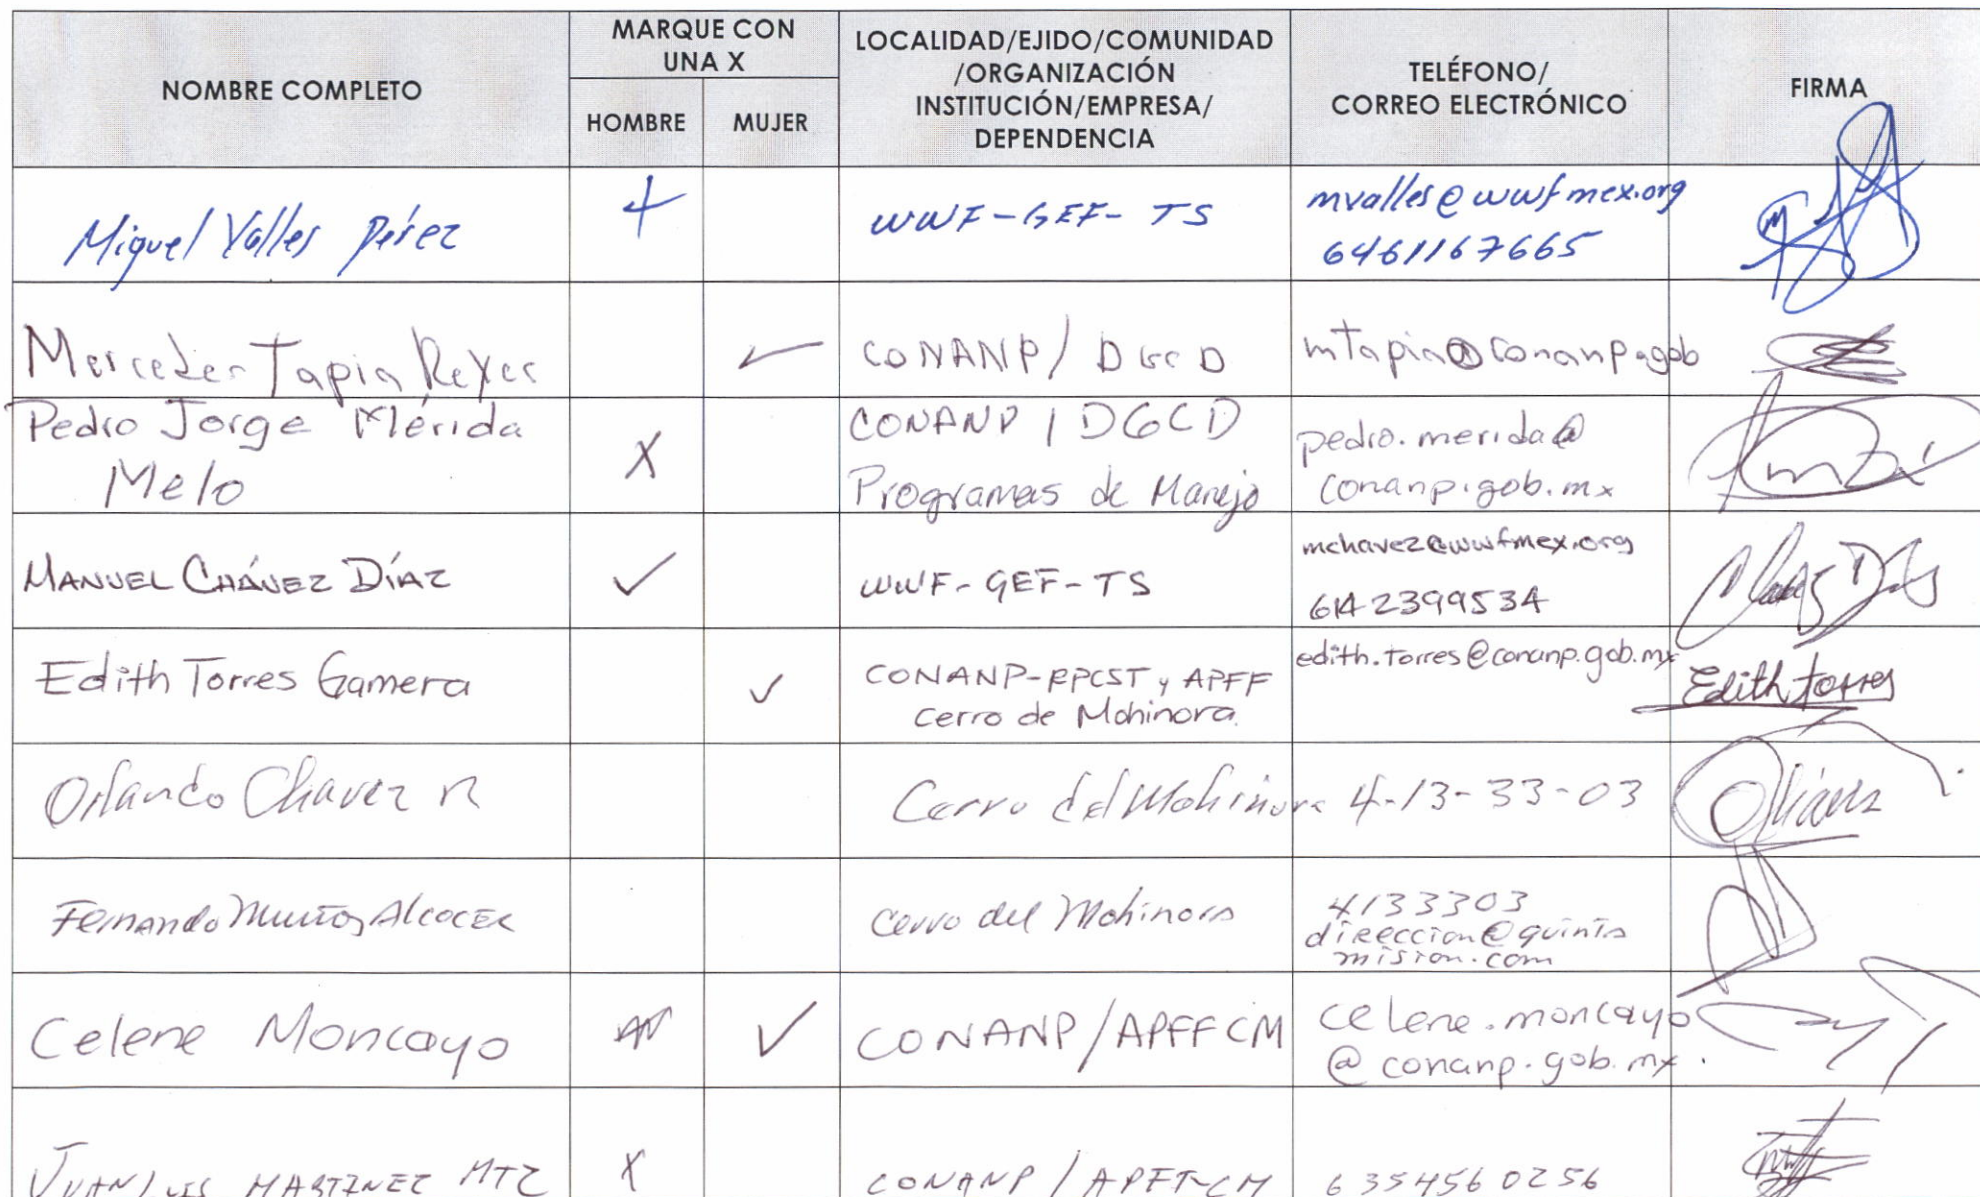 NOMBRE COMPLETO
MARQUE CON
UNA X
HOMBRE
MUJER
LOCALIDAD/EJIDO/COMUNIDAD
/ORGANIZACIÓN
INSTITUCIÓN/EMPRESA/
DEPENDENCIA
TELÉFONO/
CORREO ELECTRÓNICO
FIRMA
Miguel Valles Pérez
WWF-GEF-TS
mvalles@wwfmex.org
6461167665
Mercedes Tapia Reyes
CONANP/DGCD
mTapia@conanp.gob
Pedro Jorge Mérida
Melo
X
CONANP/DGCD
Programas de Manejo
pedro.merida@
conanp.gob.mx
MANUEL CHÁVEZ DÍAZ
WWF-GEF-TS
mchavez@wwfmex.org
6142399534
Edith Torres Gamera
CONANP-RPCST y APFF
Cerro de Mohinora
edith.torres@conanp.gob.mx
Edith torres
Orlando Chavez R
Cerro del Mohinora
4-13-33-03
Fernando Muñoz Alcocer
Cerro del Mohinora
4133303
direccion@quinta
mision.com
Celene Moncayo
CONANP/APFFCM
celene.moncayo
@conanp.gob.mx.
JUAN LUIS MARTINEZ MTZ
X
CONANP/APFF-CM
6354560256